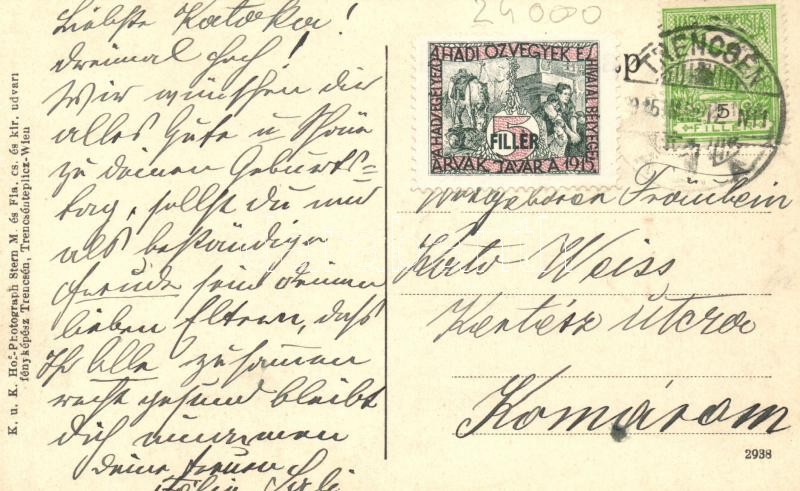 24000
Liebste Katóka!
dreimal hoch!
Wir wünschen dir
alles Gute u Schöne
zu deinem Geburts=
tag, sollst du nur
als beständige
Freude sein deinen
lieben Eltern, daß
Ihr Alle zusammen
recht gesund bleibt
Dich umarmen
deine treuen
K. u. K. Hof-Photograph Stern M. és Fia, cs. és kir. udvari
fényképész Trencsén, Trencsénteplicz-Wien
A HADI ÖZVEGYEK ÉS
ÁRVÁK JAVÁRA 1915
HIVATAL BÉLYEGE
5
FILLÉR
TRENCSÉN
5
FILLÉR
Wohlgeboren Fräulein
Kató Weiss
Kertész utcza
Komárom
2938